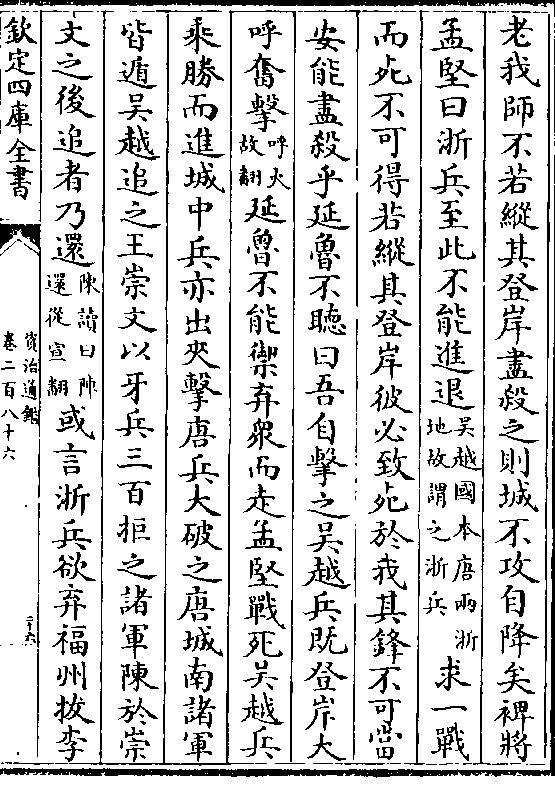 老我師不若縱其登岸盡殺之則城不攻自降矣裨將
孟堅曰浙兵至此不能進退吳越國本唐兩浙地故謂之浙兵求一戰
而死不可得若縱其登岸彼必致死於我其鋒不可當
安能盡殺乎延魯不聽曰吾自擊之吳越兵既登岸大
呼奮擊呼火故翻延魯不能禦弃衆而走孟堅戰死吳越兵
乘勝而進城中兵亦出夾擊唐兵大破之唐城南諸軍
皆遁吳越追之王崇文以牙兵三百拒之諸軍陳於崇
文之後追者乃還陳讀曰陣還從宣翻或言浙兵欲弃福州拔李
欽定四庫全書
資治通鑑
卷二百八十六
二十六